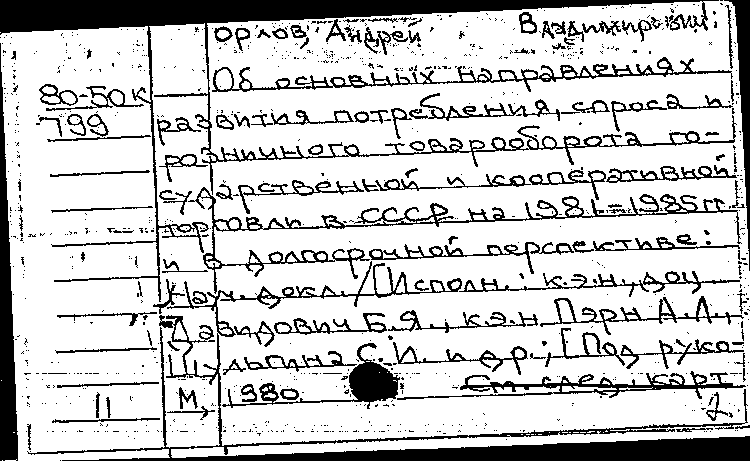 Орлов, Андрей Владимирович:
80-50к
799
Об основных направлениях
развития потребления, спроса и
розничного товарооборота го-
сударственной и кооперативной
торговли в СССР на 1981-1985гг.
и в долгосрочной перспективе:
Науч. докл. / [Исполн.: к.э.н., доц.
Давидович Б.Я., к.э.н. Пэрн А.Л.,
Шульгина С.И. и др.; [Под руко-
11
М, 1980.
См. след. карт
2